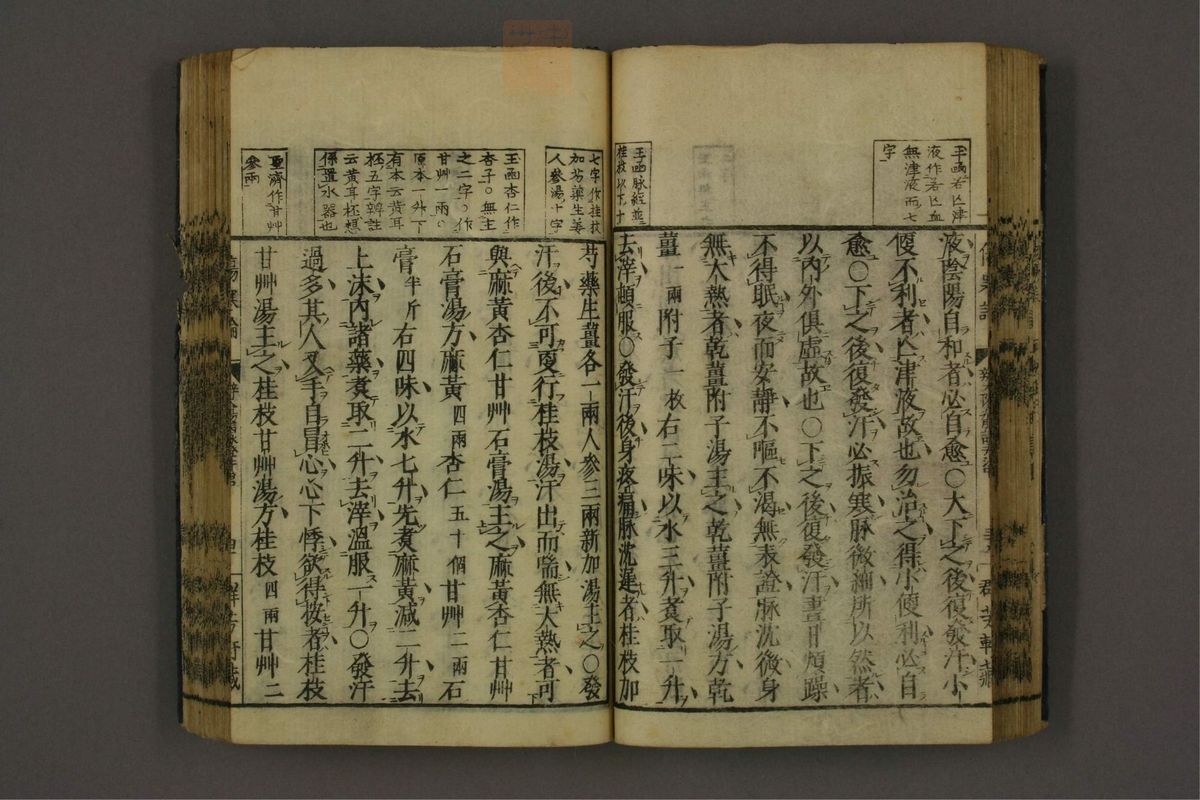 玉函若亾津
液作若亾血
無津液而七
字
玉函脉經並
桂枝以下十
液陰陽自和者必自愈○大下之後復發汗小
便不利者亾津液故也勿治之得小便利必自
愈○下之後復發汗必振寒脉微細所以然者
以内外俱虛故也○下之後復發汗晝日煩躁
不得眠夜而安靜不嘔不渴無表證脉沈微身
無大熱者乾薑附子湯主之乾薑附子湯方乾
薑一兩附子一枚右二味以水三升煮取一升
去滓頓服○發汗後身疼痛脉沈遲者桂枝加
七字作桂枝
加芍藥生姜
人參湯十字
玉函杏仁作
杏子○無主
之二字○作
甘艸一兩○
原本一升下
有本云黄耳
杯五字辨註
云黄耳杯想
係置水器也
聖濟作甘艸
參兩
芍藥生薑各一兩人參三兩新加湯主之○發
汗後不可更行桂枝湯汗出而喘無大熱者可
與麻黄杏仁甘艸石膏湯主之麻黄杏仁甘艸
石膏湯方麻黄四兩杏仁五十個甘艸二兩石
膏半斤右四味以水七升先煮麻黄减二升去
上沫内諸藥煮取二升去滓溫服一升○發汗
過多其人叉手自冒心心下悸欲得按者桂枝
甘艸湯主之桂枝甘艸湯方桂枝四兩甘艸二